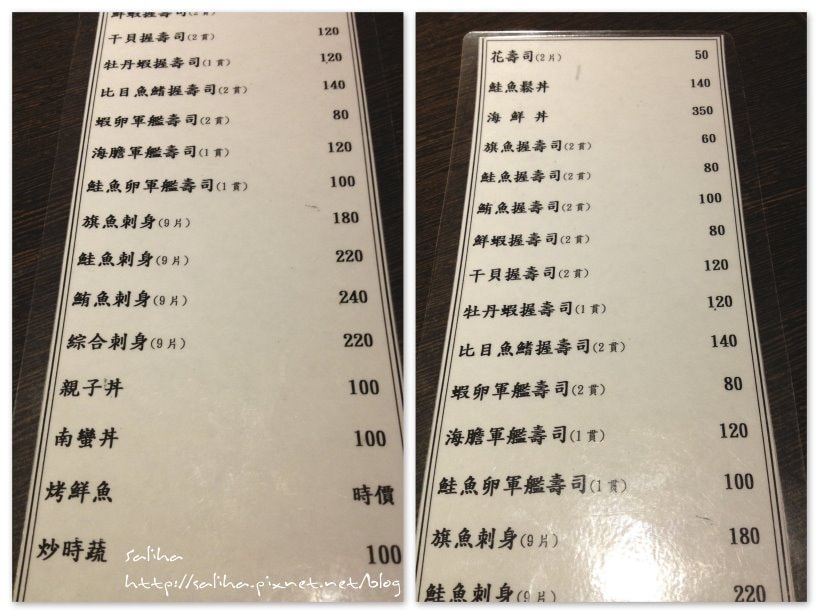 鮮蝦握壽司(2貫)
干貝握壽司(2貫) 120
牡丹蝦握壽司(1貫) 120
比目魚鰭握壽司(2貫) 140
蝦卵軍艦壽司(2貫) 80
海膽軍艦壽司(1貫) 120
鮭魚卵軍艦壽司(1貫) 100
旗魚刺身(9片) 180
鮭魚刺身(9片) 220
鮪魚刺身(9片) 240
綜合刺身(9片) 220
親子丼 100
南蠻丼 100
烤鮮魚 時價
炒時蔬 100
saliha
http://saliha.pixnet.net/blog
花壽司(2片) 50
鮭魚鬆丼 140
海鮮丼 350
旗魚握壽司(2貫) 60
鮭魚握壽司(2貫) 80
鮪魚握壽司(2貫) 100
鮮蝦握壽司(2貫) 80
干貝握壽司(2貫) 120
牡丹蝦握壽司(1貫) 120
比目魚鰭握壽司(2貫) 140
蝦卵軍艦壽司(2貫) 80
海膽軍艦壽司(1貫) 120
鮭魚卵軍艦壽司(1貫) 100
旗魚刺身(9片) 180
鮭魚刺身(9片) 220